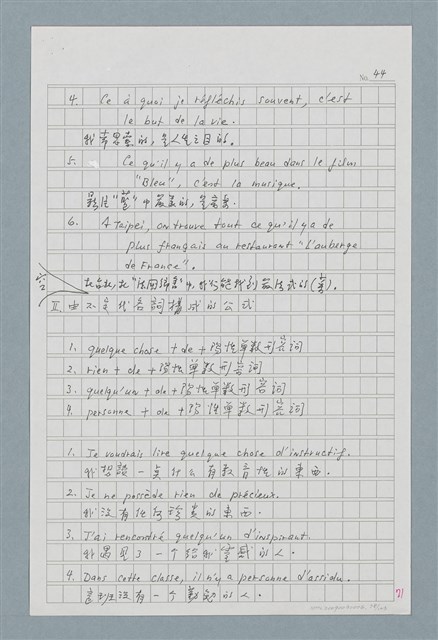 No. 44
4. Ce à quoi je réfléchis souvent, c'est
le but de la vie.
我常思索的，是人生之目的。
5. Ce qu'il y a de plus beau dans le film
"Bleu", c'est la musique.
影片"藍"中最美的，是音樂。
6. A Taipei, on trouve tout ce qu'il y a de
plus français au restaurant "l'auberge
de France".
在台北，在"法國
II. 由不定代名詞構成的公式
1. quelque chose + de + 陽性單數形容詞
2. rien + de + 陽性單數形容詞
3. quelqu'un + de + 陽性單數形容詞
4. personne + de + 陽性單數形容詞
1. Je voudrais lire quelque chose d'instructif.
我想讀一點什么有教育性的東西。
2. Je ne possède rien de précieux.
我沒有任何珍貴的東西。
3. J'ai rencontré quelqu'un d'inspirant.
我遇見了一個給我靈感的人。
4. Dans cette classe, il n'y a personne d'assidu.
這班沒有一個勤勉的人。
71